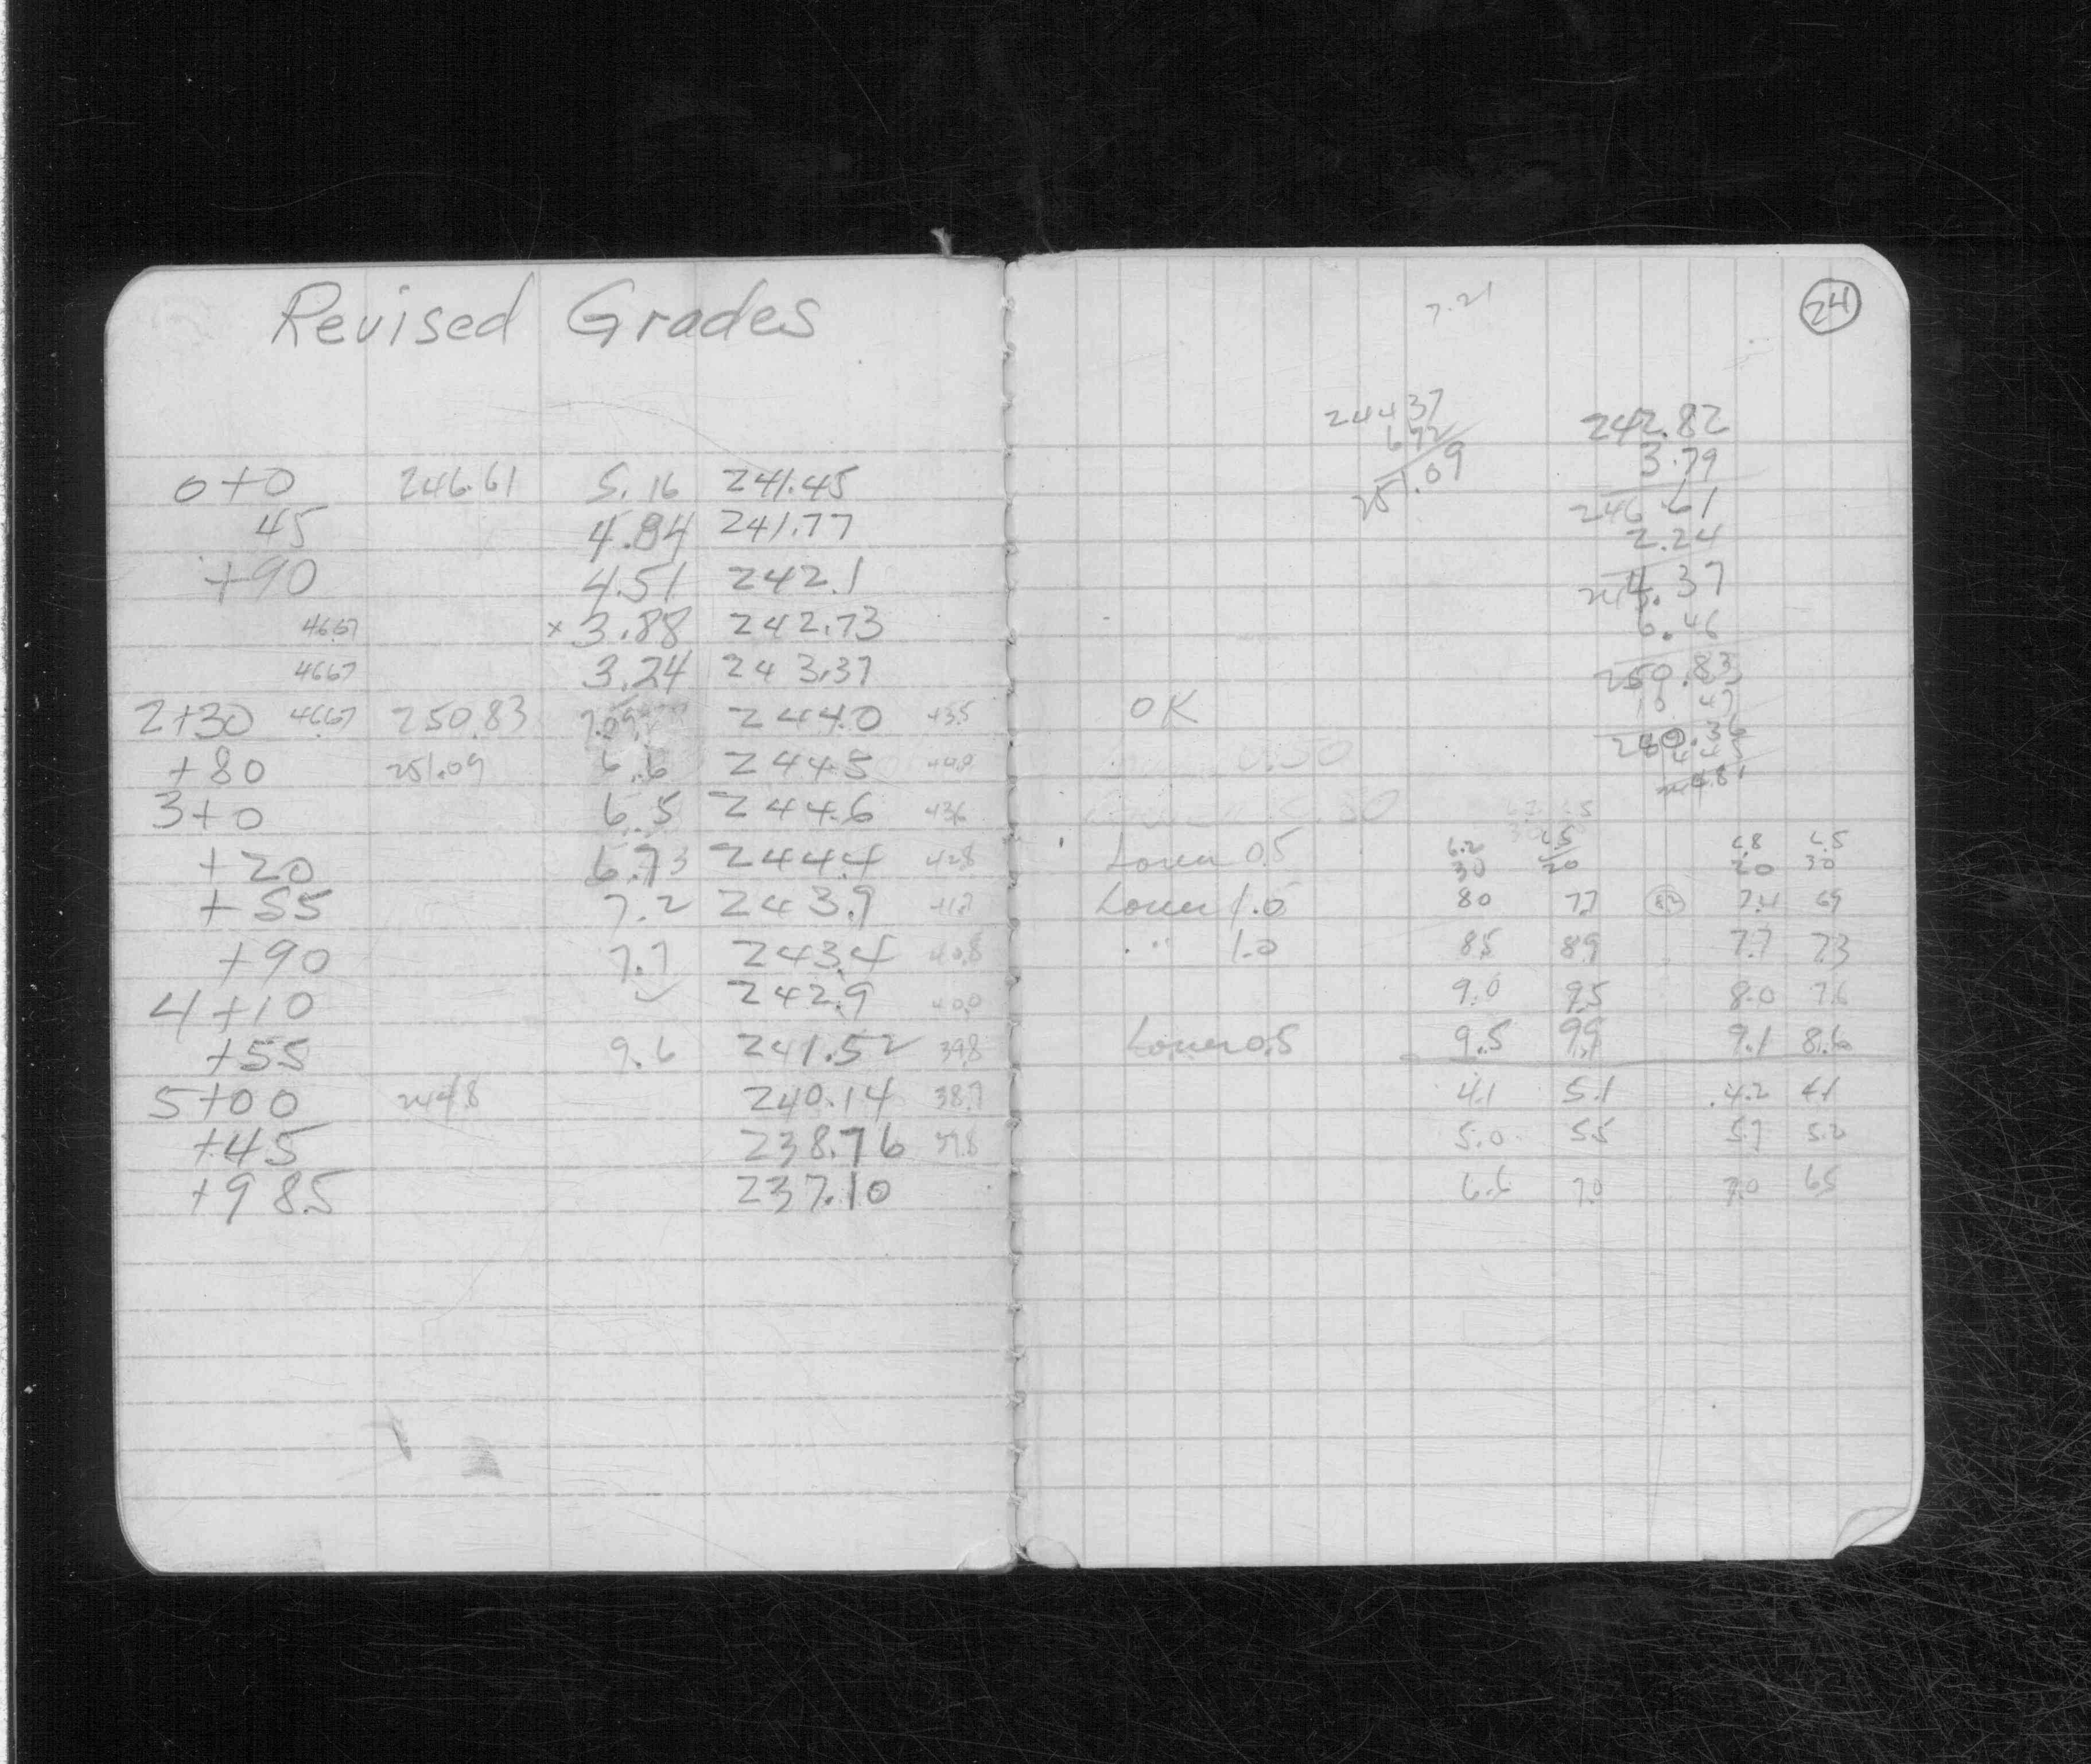 Revised Grades
0+0 246.61 5.16 241.45
45 4.84 241.77
+90 4.51 242.1
46.67 × 3.88 242.73
46.67 3.24 243.37
2+30 46.67 250.83 7.09 244.0 43.5
+80 251.09 6.6 244.5
3+0 6.5 244.6 43.6
+20 6.73 244.4 42.8
+55 7.2 243.9 41.7
+90 7.7 243.4 40.8
4+10 242.9 40.0
+55 9.6 241.52 39.8
5+00 244.8 240.14 38.7
+45 238.76 37.8
+98.5 237.10
24
7.21
244 37
6 72
251.09
242.82
3.79
246 61
2.24
244.37
6.46
250.83
10 47
240.36
4.45
244.81
OK
0.50
Lower 0.5 6.2 6.5 6.8 6.5
30 20 20 30
Lower 1.0 80 7.7 7.4 69
" 1.0 85 89 7.7 7.3
9.0 9.5 8.0 7.6
Lower 0.5 9.5 9.9 9.1 8.6
4.1 5.1 4.2 4.1
5.0 5.5 5.7 5.2
6.6 7.0 7.0 6.5